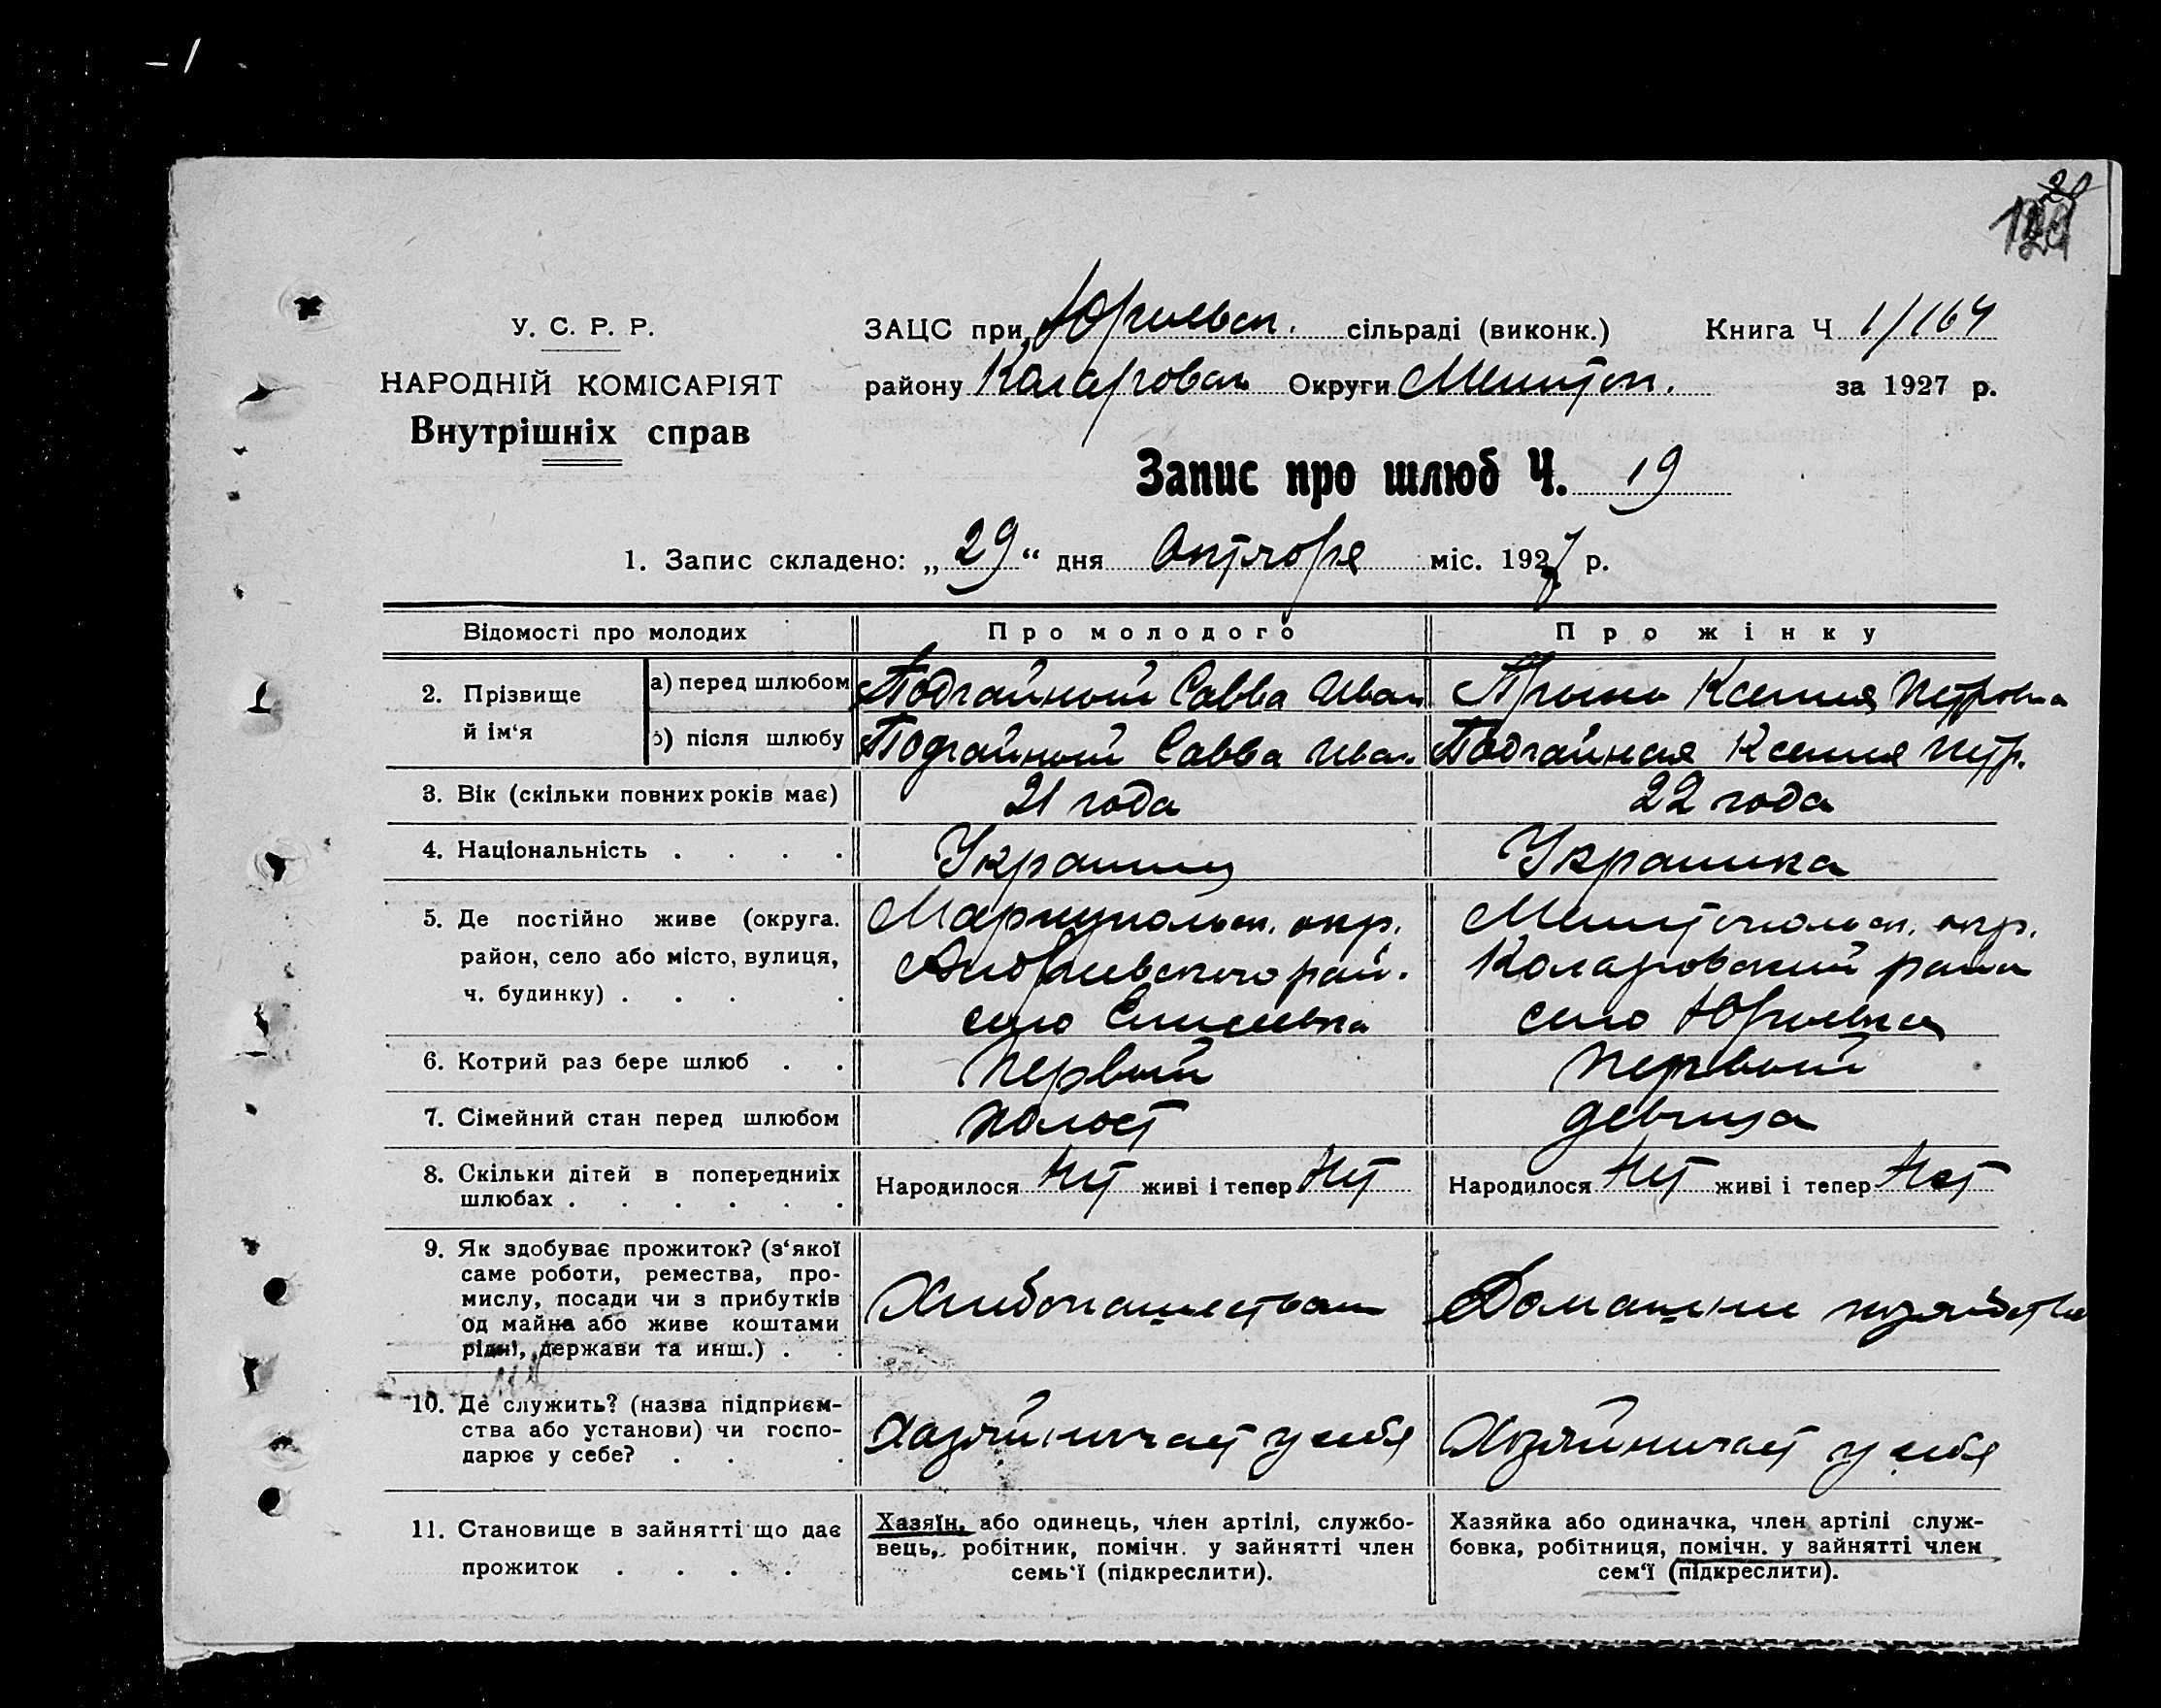 У. С. Р. Р.
НАРОДНІЙ КОМІСАРІЯТ
Внутрішніх справ
ЗАЦС при Юрьевск. сільраді (виконк.) Книга Ч 1/164
району Коларовск Округи Мелитоп. за 1927 р.
Запис про шлюб Ч. 19
1. Запис складено: „29“ дня Октября міс. 1927 р.
Відомості про молодих Про молодого Про жінку
2. Прізвище й ім‘я
а) перед шлюбом Подгайный Савва Иван Ксения Петровна
б) після шлюбу Подгайный Савва Иван. Подгайная Ксения Петр.
3. Вік (скільки повних років має) 21 года 22 года
4. Національність . . . . Украинец Украинка
5. Де постійно живе (округа. Мариупольск. окр. Мелитопольск. окр.
район, село або місто, вулиця, Андреевского рай. Коларовский район
ч. будинку) . . . . село Елисеевка село Юрьевка
6. Котрий раз бере шлюб . . Первый Первый
7. Сімейний стан перед шлюбом Холост девица
8. Скільки дітей в попередниіх шлюбах . . . . . . Народилося Нет живі і тепер Нет Народилося Нет живі і тепер Нет
9. Як здобуває прожиток? (з‘якої
саме роботи, ремества, про-
мислу, посади чи з прибутків Хлебопашеством Домашние хозяйство
од майна або живе коштами
рідні, держави та инш.) . .
10. Де служить? (назва підприєм-
ства або установи) чи госпо- Хазяйничает у себя Хозяйничает у себя
дарює у себе? . . .
11. Становище в зайнятті що дає
прожиток . . . .
Хазяїн, або одинець, член артілі, службо-
вець, робітник, помічн. у зайнятті член
семь‘ї (підкреслити).
Хазяйка або одиначка, член артілі служ-
бовка, робітниця, помічн. у зайнятті член
сем‘ї (підкреслити).